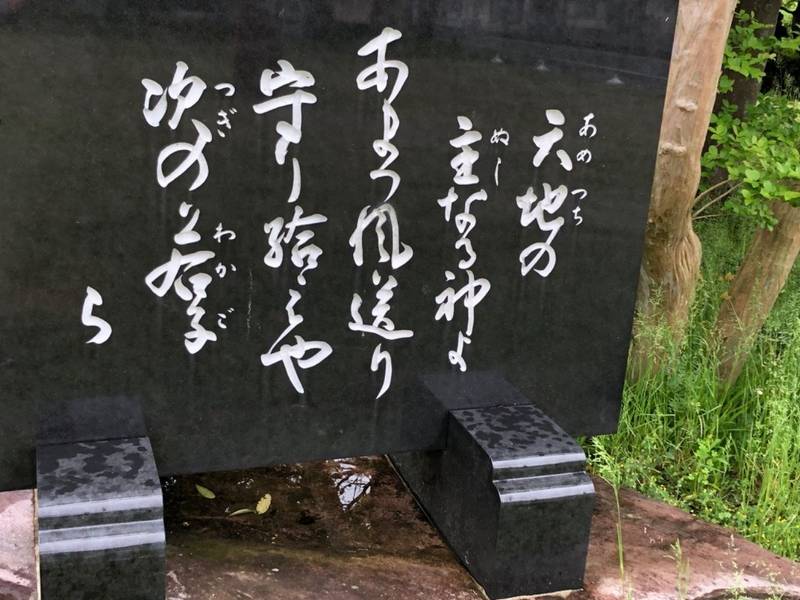 天地の
あめ
つち
主なる神よ
ぬし
あまつ風送り
守り給えや
次の若子
つぎ
わかご
ら